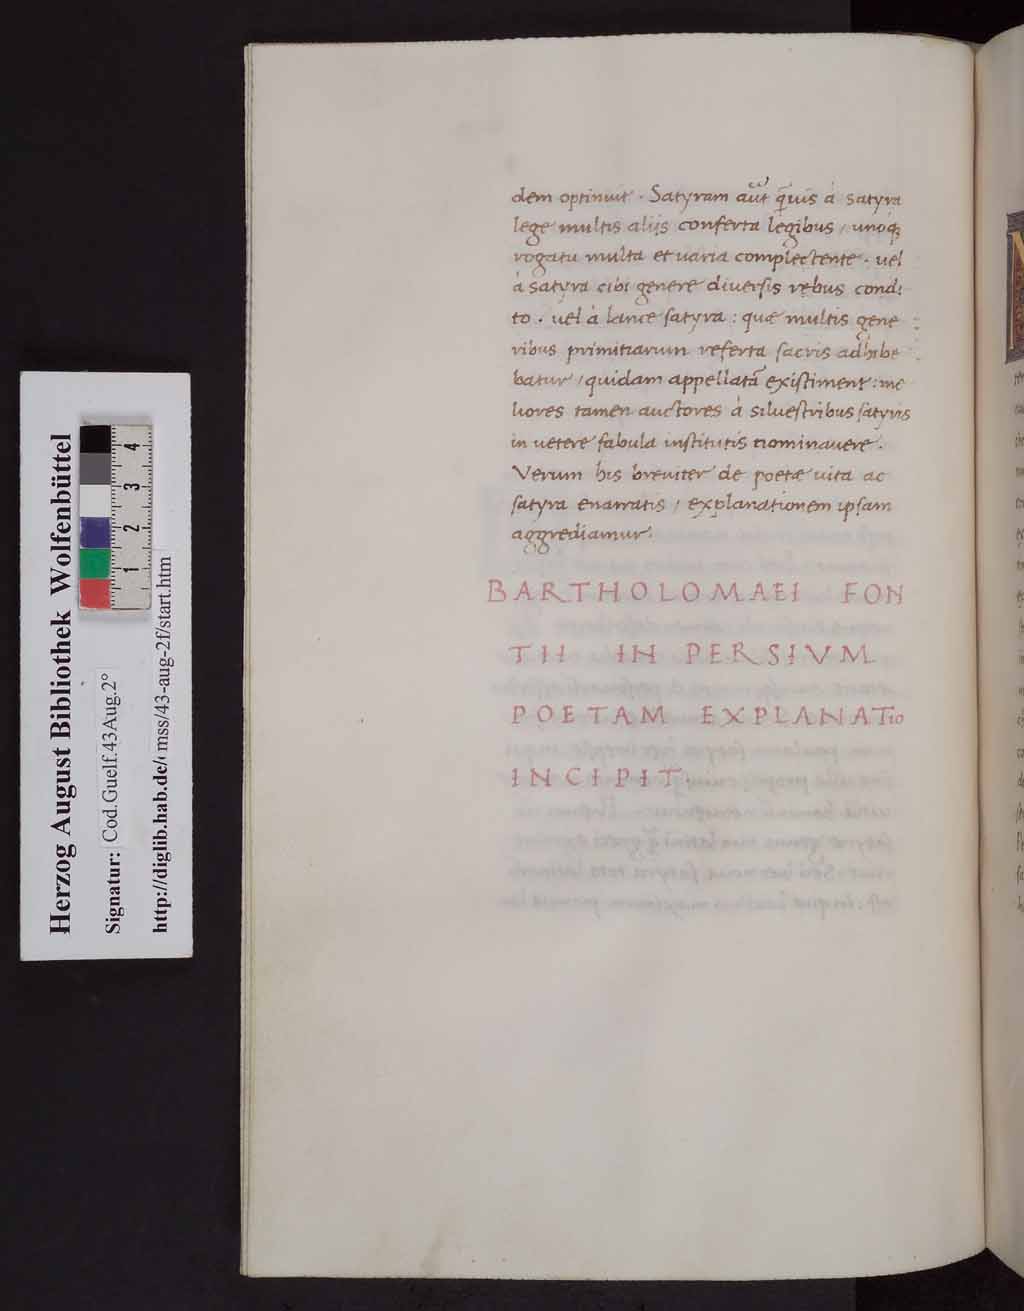 dem optinuit . Satyram aūt q̄uis á satyra
lege multis aliis conferta legibus / unoqꝫ
rogatu multa et uaria complectente . uel
á satyra cibi genere diuersis rebus condi
to . uel á lance satyra : quæ multis gene
ribus primitiarum referta sacris adhibe
batur / quidam appellatā existiment : me
liores tamen auctores á siluestribus satyris
in uetere fabula institutis nominauere .
Verum his breuiter de poetæ uita ac
satyra enarratis / explanationem ipsam
aggrediamur .
BARTHOLOMAEI FON
TII IN PERSIVM
POETAM EXPLANATio
INCIPIT .
Herzog August Bibliothek Wolfenbüttel
Signatur: Cod.Guelf.43Aug.2°
http://diglib.hab.de/ mss/43-aug-2f/start.htm
1 2 3 4